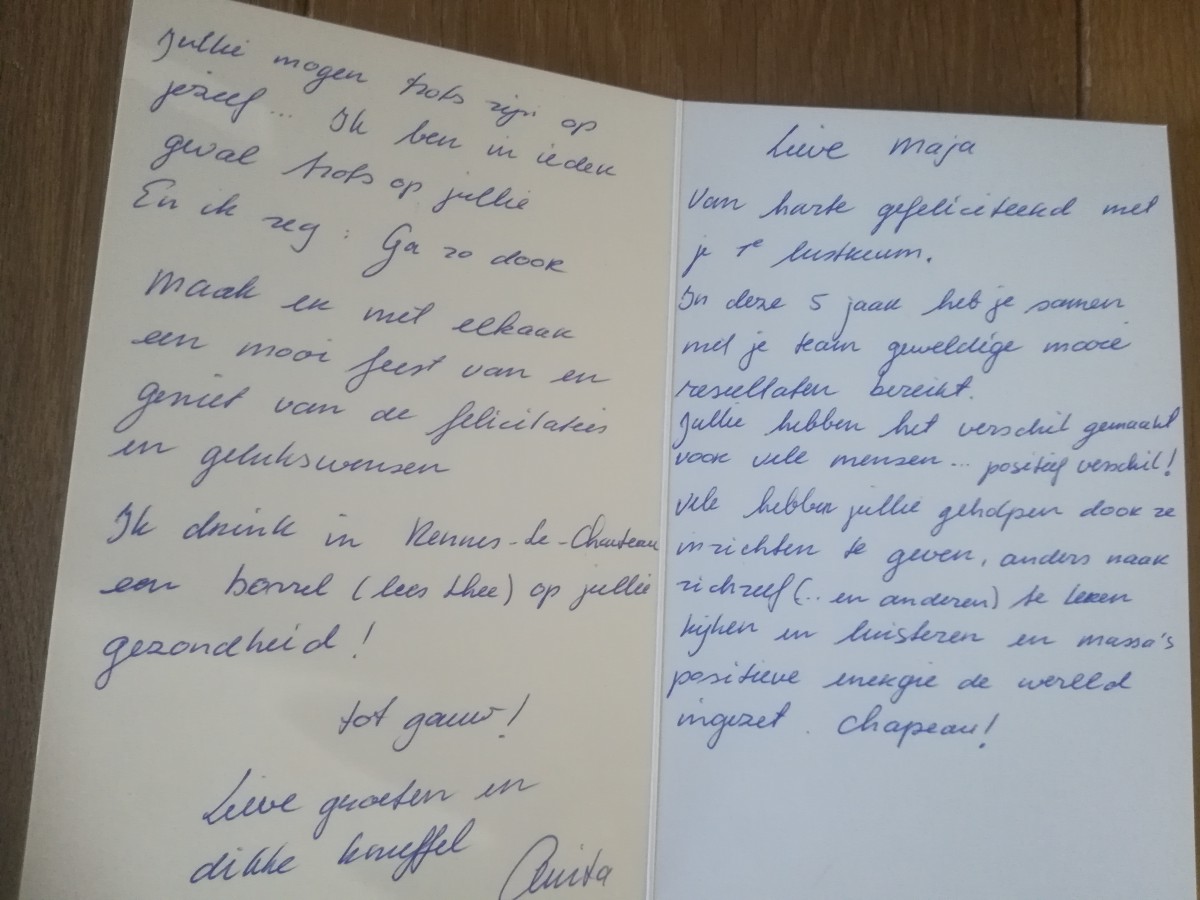 Lieve Maja
Van harte gefeliciteerd met
je 1e lustrum.
In deze 5 jaar heb je samen
met je team geweldige mooie
resultaten bereikt.
Jullie hebben het verschil gemaakt
voor vele mensen... positief verschil!
Vele hebben jullie geholpen door ze
inzichten te geven, anders naar
zichzelf (.. en anderen) te leren
kijken en luisteren en massa's
positieve energie de wereld
ingezet. Chapeau!
Jullie mogen trots zijn op
jezelf... Ik ben in ieder
geval trots op jullie
En ik zeg: Ga zo door
Maak er met elkaar
een mooi feest van en
geniet van de felicitaties
en gelukswensen
Ik drink in Rennes-le-Chauteau
een borrel (lees thee) op jullie
gezondheid!
tot gauw!
Lieve groeten en
dikke knuffel
Anita